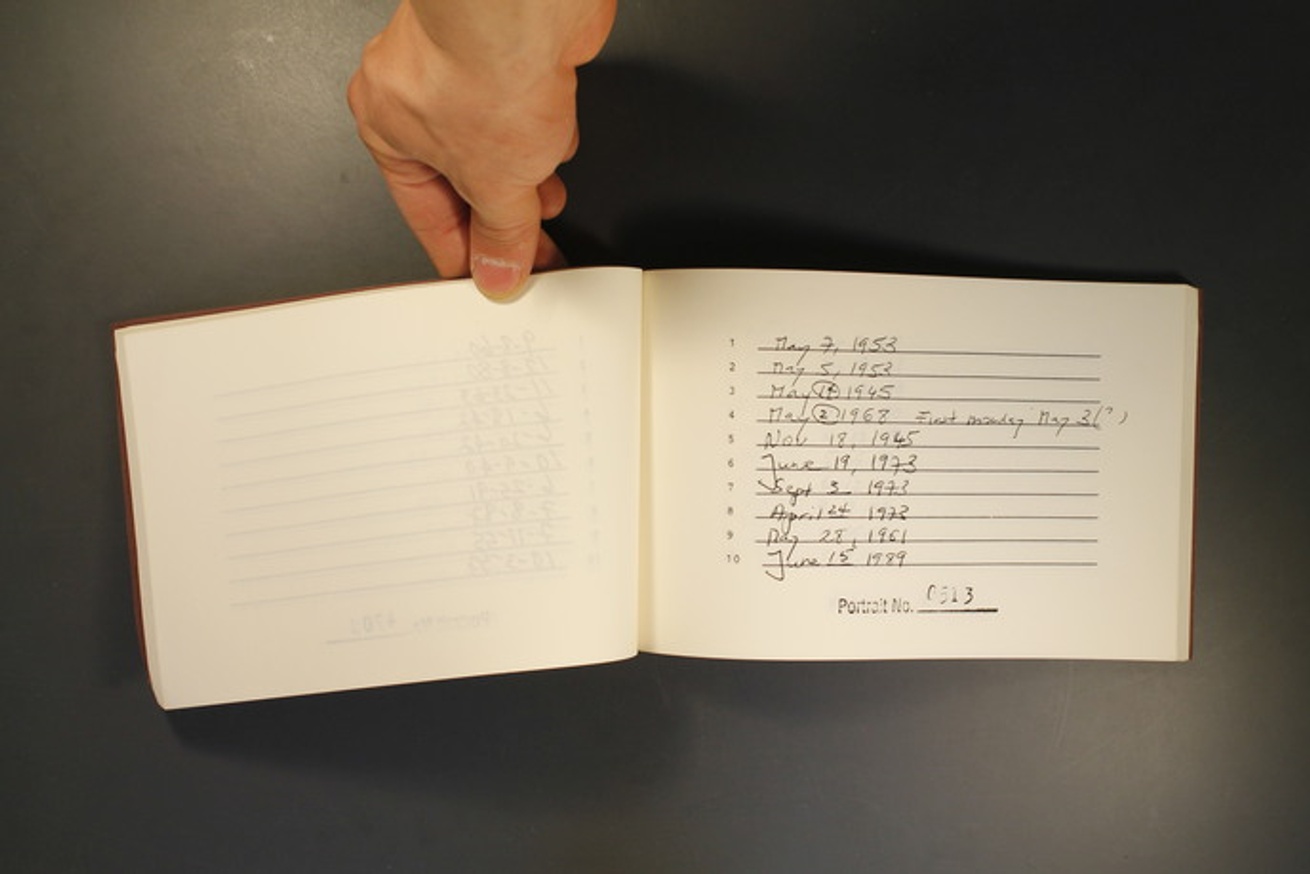 1 May 7, 1953
2 May 5, 1953
3 May 1945
4 May 2 1968 First monday May 3(?)
5 Nov 18, 1945
6 June 19, 1973
7 Sept 3 1973
8 April 24 1973
9 May 28, 1961
10 June 15 1989
Portrait No. 0513